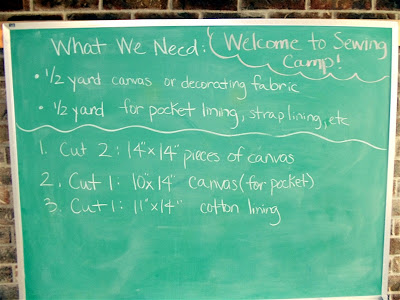 What We Need:
Welcome to Sewing
Camp!
• 1/2 yard canvas or decorating fabric
• 1/2 yard for pocket lining, strap lining, etc
1. Cut 2: 14"x 14" pieces of canvas
2. Cut 1: 10"x 14" canvas (for pocket)
3. Cut 1: 11"x 14" cotton lining